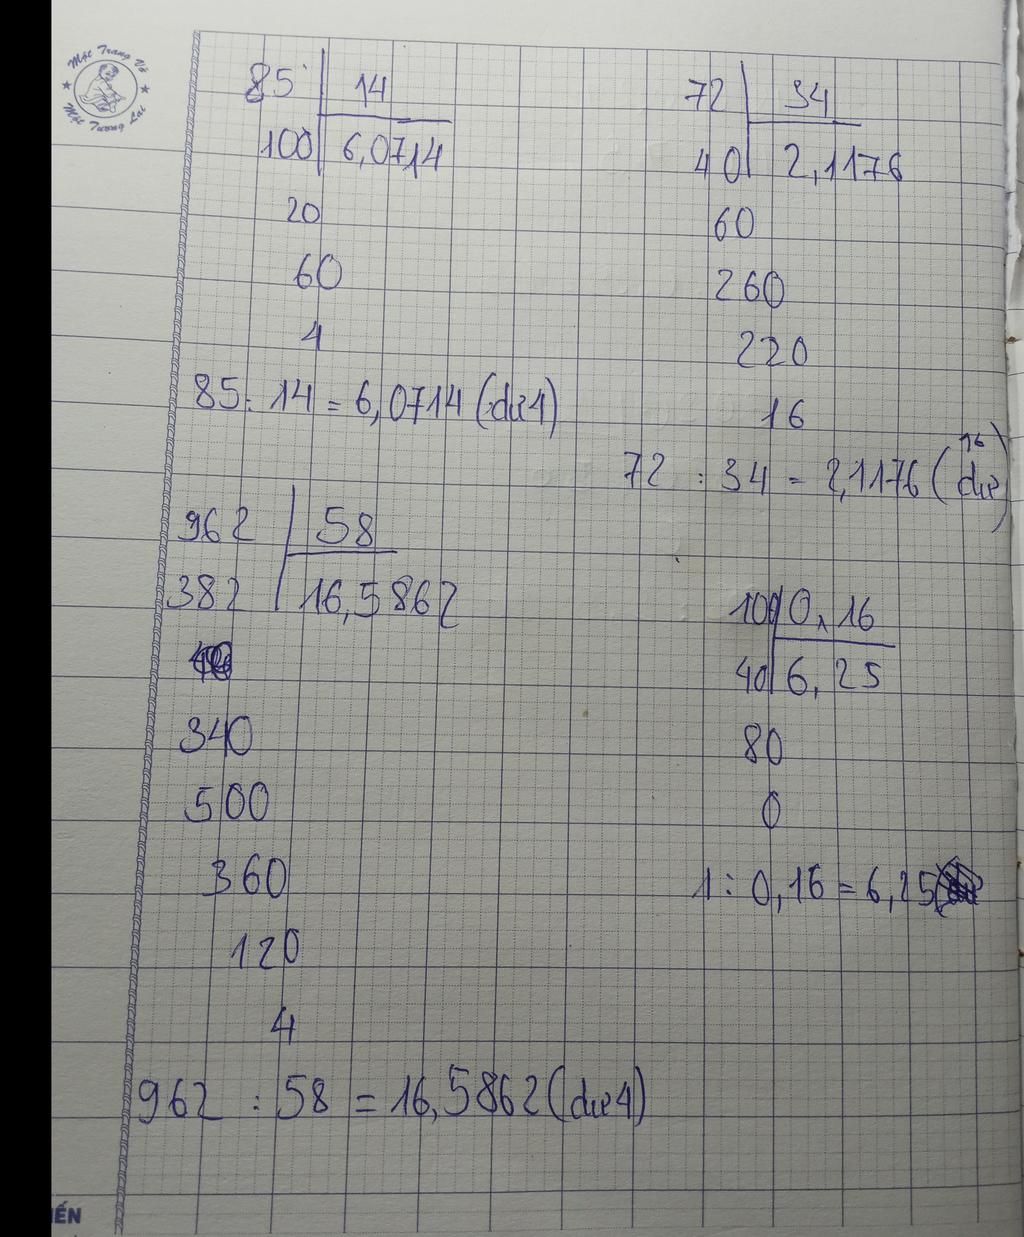 Mặc Trang Vở
Mặc Tương Lai
85 14
100 6,0714
20
60
4
85 : 14 = 6,0714 (dư 4)
72 34
40 2,1176
60
260
220
16
72 : 34 = 2,1176 (dư 16)
962 58
382 16,5862
340
500
360
120
4
962 : 58 = 16,5862 (dư 4)
100 0,16
40 6,25
80
0
1 : 0,16 = 6,25
IẾN